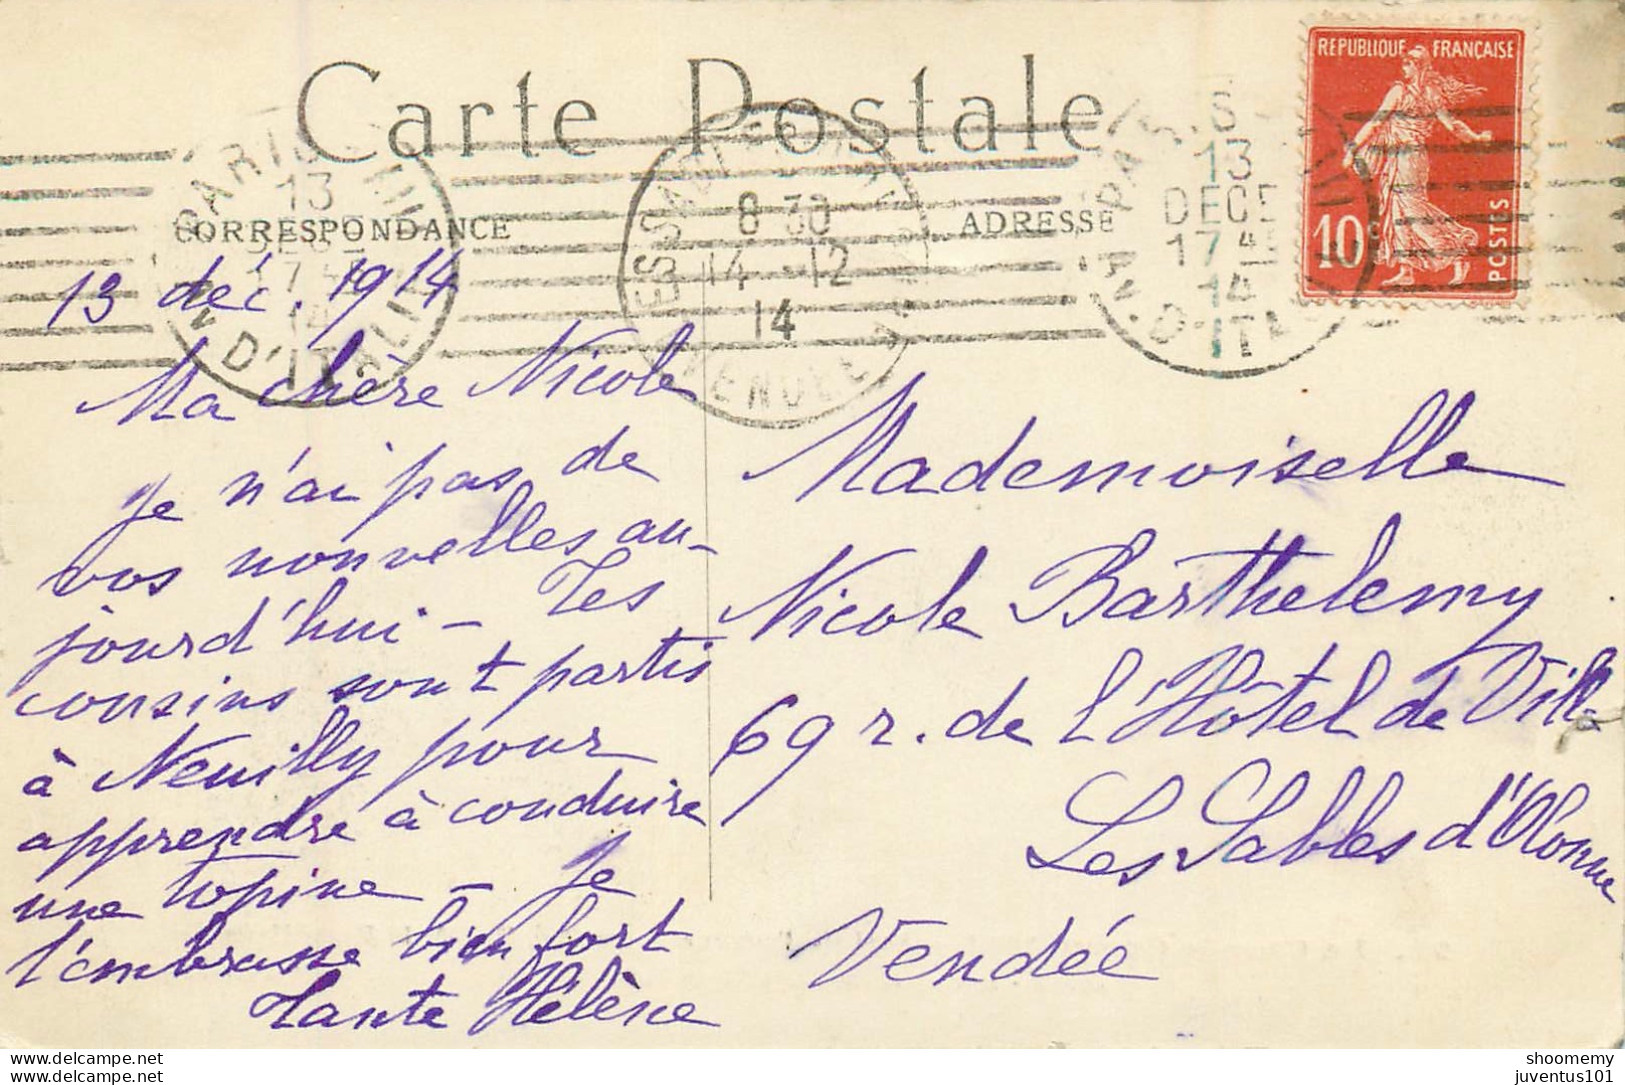 Carte Postale
CORRESPONDANCE
ADRESSE
REPUBLIQUE FRANÇAISE
10
POSTES
PARIS
13
17
14
D'ITALIE
8 30
14 - 12
14
VENDEE
13
DECE
17 4
14
D'ITA
13 déc. 1914
Ma chère Nicole
Je n'ai pas de
vos nouvelles au-
jourd'hui – Tes
cousins sont partis
à Neuilly pour
apprendre à conduire
une topine – Je
t'embrasse bien fort
Tante Hélène
Mademoiselle
Nicole Barthelemy
69 r. de l'Hôtel de Ville
Les Sables d'Olonne
Vendée
delcampe.net
delcampe.net
shoomemy
juventus101